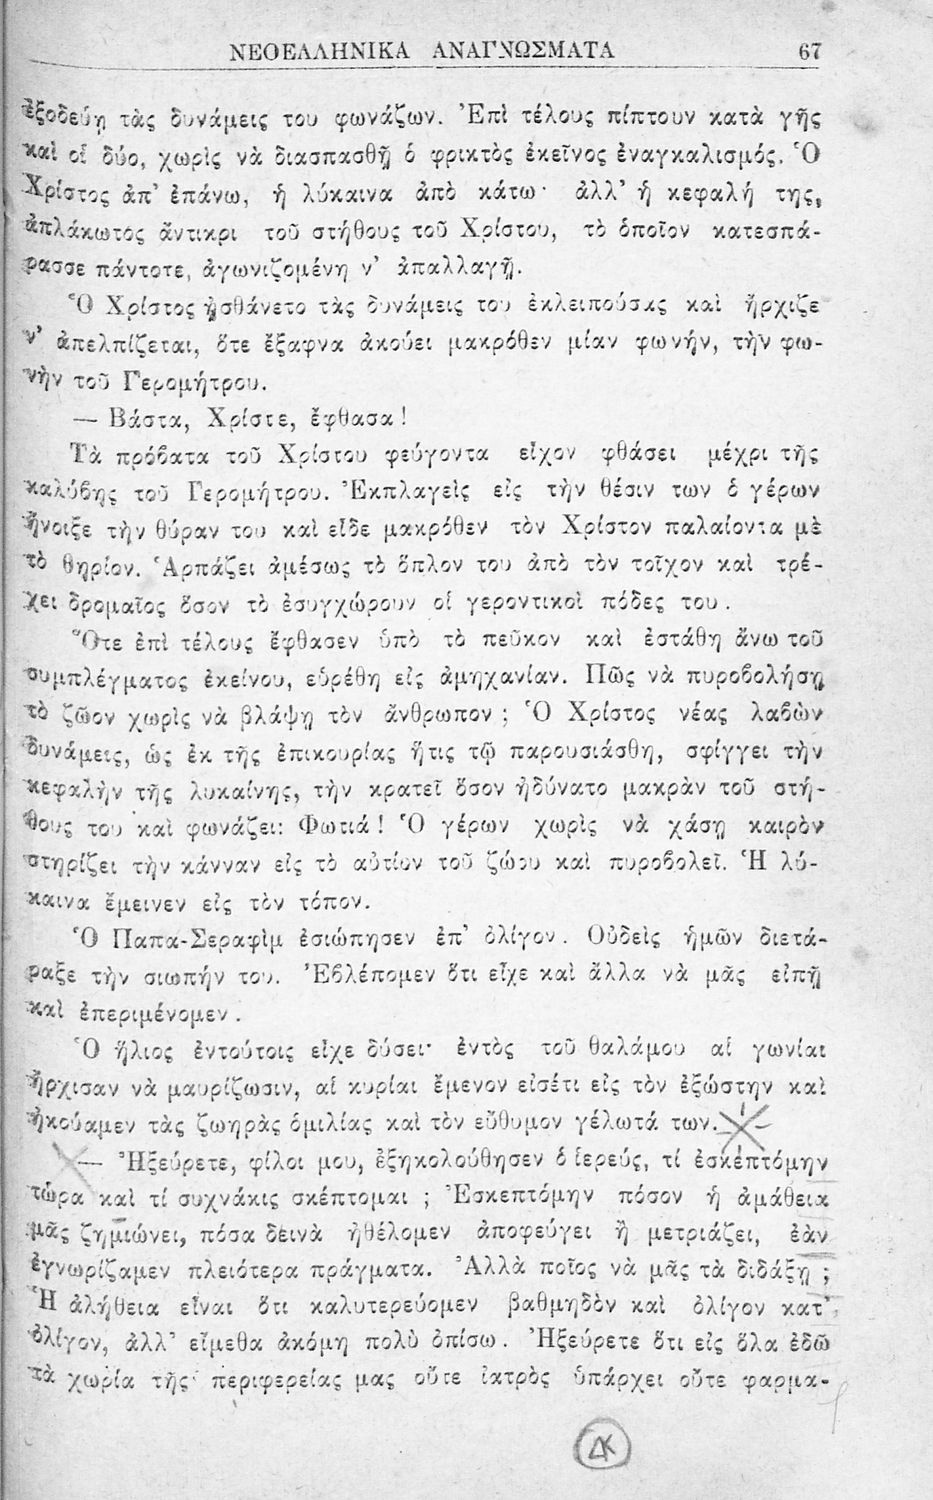 ΝΕΟΕΛΛΗΝΙΚΑ ΑΝΑΓΝΩΣΜΑΤΑ 67
ἐξοδεύῃ τὰς δυνάμεις του φωνάζων. Ἐπὶ τέλους πίπτουν κατὰ γῆς
καὶ οἱ δύο, χωρὶς νὰ διασπασθῇ ὁ φρικτὸς ἐκεῖνος ἐναγκαλισμός. Ὁ
Χρίστος ἀπ’ ἐπάνω, ἡ λύκαινα ἀπὸ κάτω· ἀλλ’ ἡ κεφαλή της,
ἀπλάκωτος ἄντικρι τοῦ στήθους τοῦ Χρίστου, τὸ ὁποῖον κατεσπά-
ρασσε πάντοτε, ἀγωνιζομένη ν’ ἀπαλλαγῇ.
Ὁ Χρίστος ᾐσθάνετο τὰς δυνάμεις του ἐκλειπούσας καὶ ἤρχιζε
ν’ ἀπελπίζεται, ὅτε ἔξαφνα ἀκούει μακρόθεν μίαν φωνήν, τὴν φω-
νὴν τοῦ Γερομήτρου.
— Βάστα, Χρίστε, ἔφθασα!
Τὰ πρόβατα τοῦ Χρίστου φεύγοντα εἶχον φθάσει μέχρι τῆς
καλύβης τοῦ Γερομήτρου. Ἐκπλαγεὶς εἰς τὴν θέσιν των ὁ γέρων
ἤνοιξε τὴν θύραν του καὶ εἶδε μακρόθεν τὸν Χρίστον παλαίοντα μὲ
τὸ θηρίον. Ἁρπάζει ἀμέσως τὸ ὅπλον του ἀπὸ τὸν τοῖχον καὶ τρέ-
χει δρομαῖος ὅσον τὸ ἐσυγχώρουν οἱ γεροντικοὶ πόδες του.
Ὅτε ἐπὶ τέλους ἔφθασεν ὑπὸ τὸ πεῦκον καὶ ἐστάθη ἄνω τοῦ
συμπλέγματος ἐκείνου, εὑρέθη εἰς ἀμηχανίαν. Πῶς νὰ πυροβολήσῃ
τὸ ζῶον χωρὶς νὰ βλάψῃ τὸν ἄνθρωπον; Ὁ Χρίστος νέας λαβὼν
δυνάμεις, ὡς ἐκ τῆς ἐπικουρίας ἥτις τῷ παρουσιάσθη, σφίγγει τὴν
κεφαλὴν τῆς λυκαίνης, τὴν κρατεῖ ὅσον ἠδύνατο μακρὰν τοῦ στή-
θους του καὶ φωνάζει: Φωτιά! Ὁ γέρων χωρὶς νὰ χάσῃ καιρὸν
στηρίζει τὴν κάνναν εἰς τὸ αὐτίον τοῦ ζώου καὶ πυροβολεῖ. Ἡ λύ-
καινα ἔμεινεν εἰς τὸν τόπον.
Ὁ Παπα-Σεραφὶμ ἐσιώπησεν ἐπ’ ὀλίγον. Οὐδεὶς ἡμῶν διετά-
ραξε τὴν σιωπήν του. Ἐβλέπομεν ὅτι εἶχε καὶ ἄλλα νὰ μᾶς εἰπῇ
καὶ ἐπεριμένομεν.
Ὁ ἥλιος ἐντούτοις εἶχε δύσει· ἐντὸς τοῦ θαλάμου αἱ γωνίαι
ἤρχισαν νὰ μαυρίζωσιν, αἱ κυρίαι ἔμενον εἰσέτι εἰς τὸν ἐξώστην καὶ
ἠκούαμεν τὰς ζωηρὰς ὁμιλίας καὶ τὸν εὔθυμον γέλωτά των.
— Ἠξεύρετε, φίλοι μου, ἐξηκολούθησεν ὁ ἱερεύς, τί ἐσκεπτόμην
τώρα καὶ τί συχνάκις σκέπτομαι; Ἐσκεπτόμην πόσον ἡ ἀμάθεια
μᾶς ζημιώνει, πόσα δεινὰ ἠθέλομεν ἀποφεύγει ἢ μετριάζει, ἐὰν
ἐγνωρίζαμεν πλειότερα πράγματα. Ἀλλὰ ποῖος νὰ μᾶς τὰ διδάξῃ;
Ἡ ἀλήθεια εἶναι ὅτι καλυτερεύομεν βαθμηδὸν καὶ ὀλίγον κατ’
ὀλίγον, ἀλλ’ εἴμεθα ἀκόμη πολὺ ὀπίσω. Ἠξεύρετε ὅτι εἰς ὅλα ἐδῶ
τὰ χωρία τῆς περιφερείας μας οὔτε ἰατρὸς ὑπάρχει οὔτε φαρμα-
ΔΚ